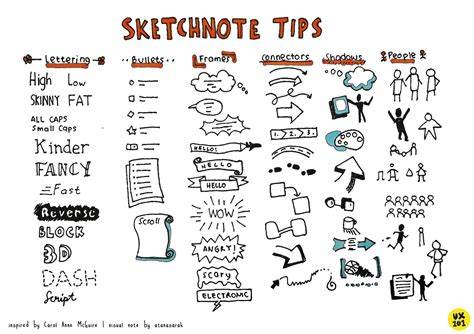 SKETCHNOTE TIPS
Lettering
Bullets
Frames
connectors
Shadows
People
High Low
SKINNY FAT
ALL CAPS
Small Caps
Kinder
FANCY
Fast
Reverse
BLOCK
3D
DASH
Script
Scroll
HELLO!
HELLO
HELLO
WOW
ANGRY!
scary
ELECTRONIC
1. 2. 3.
inspired by Carol Anne McGuire | visual note by atanasarah
UX
201